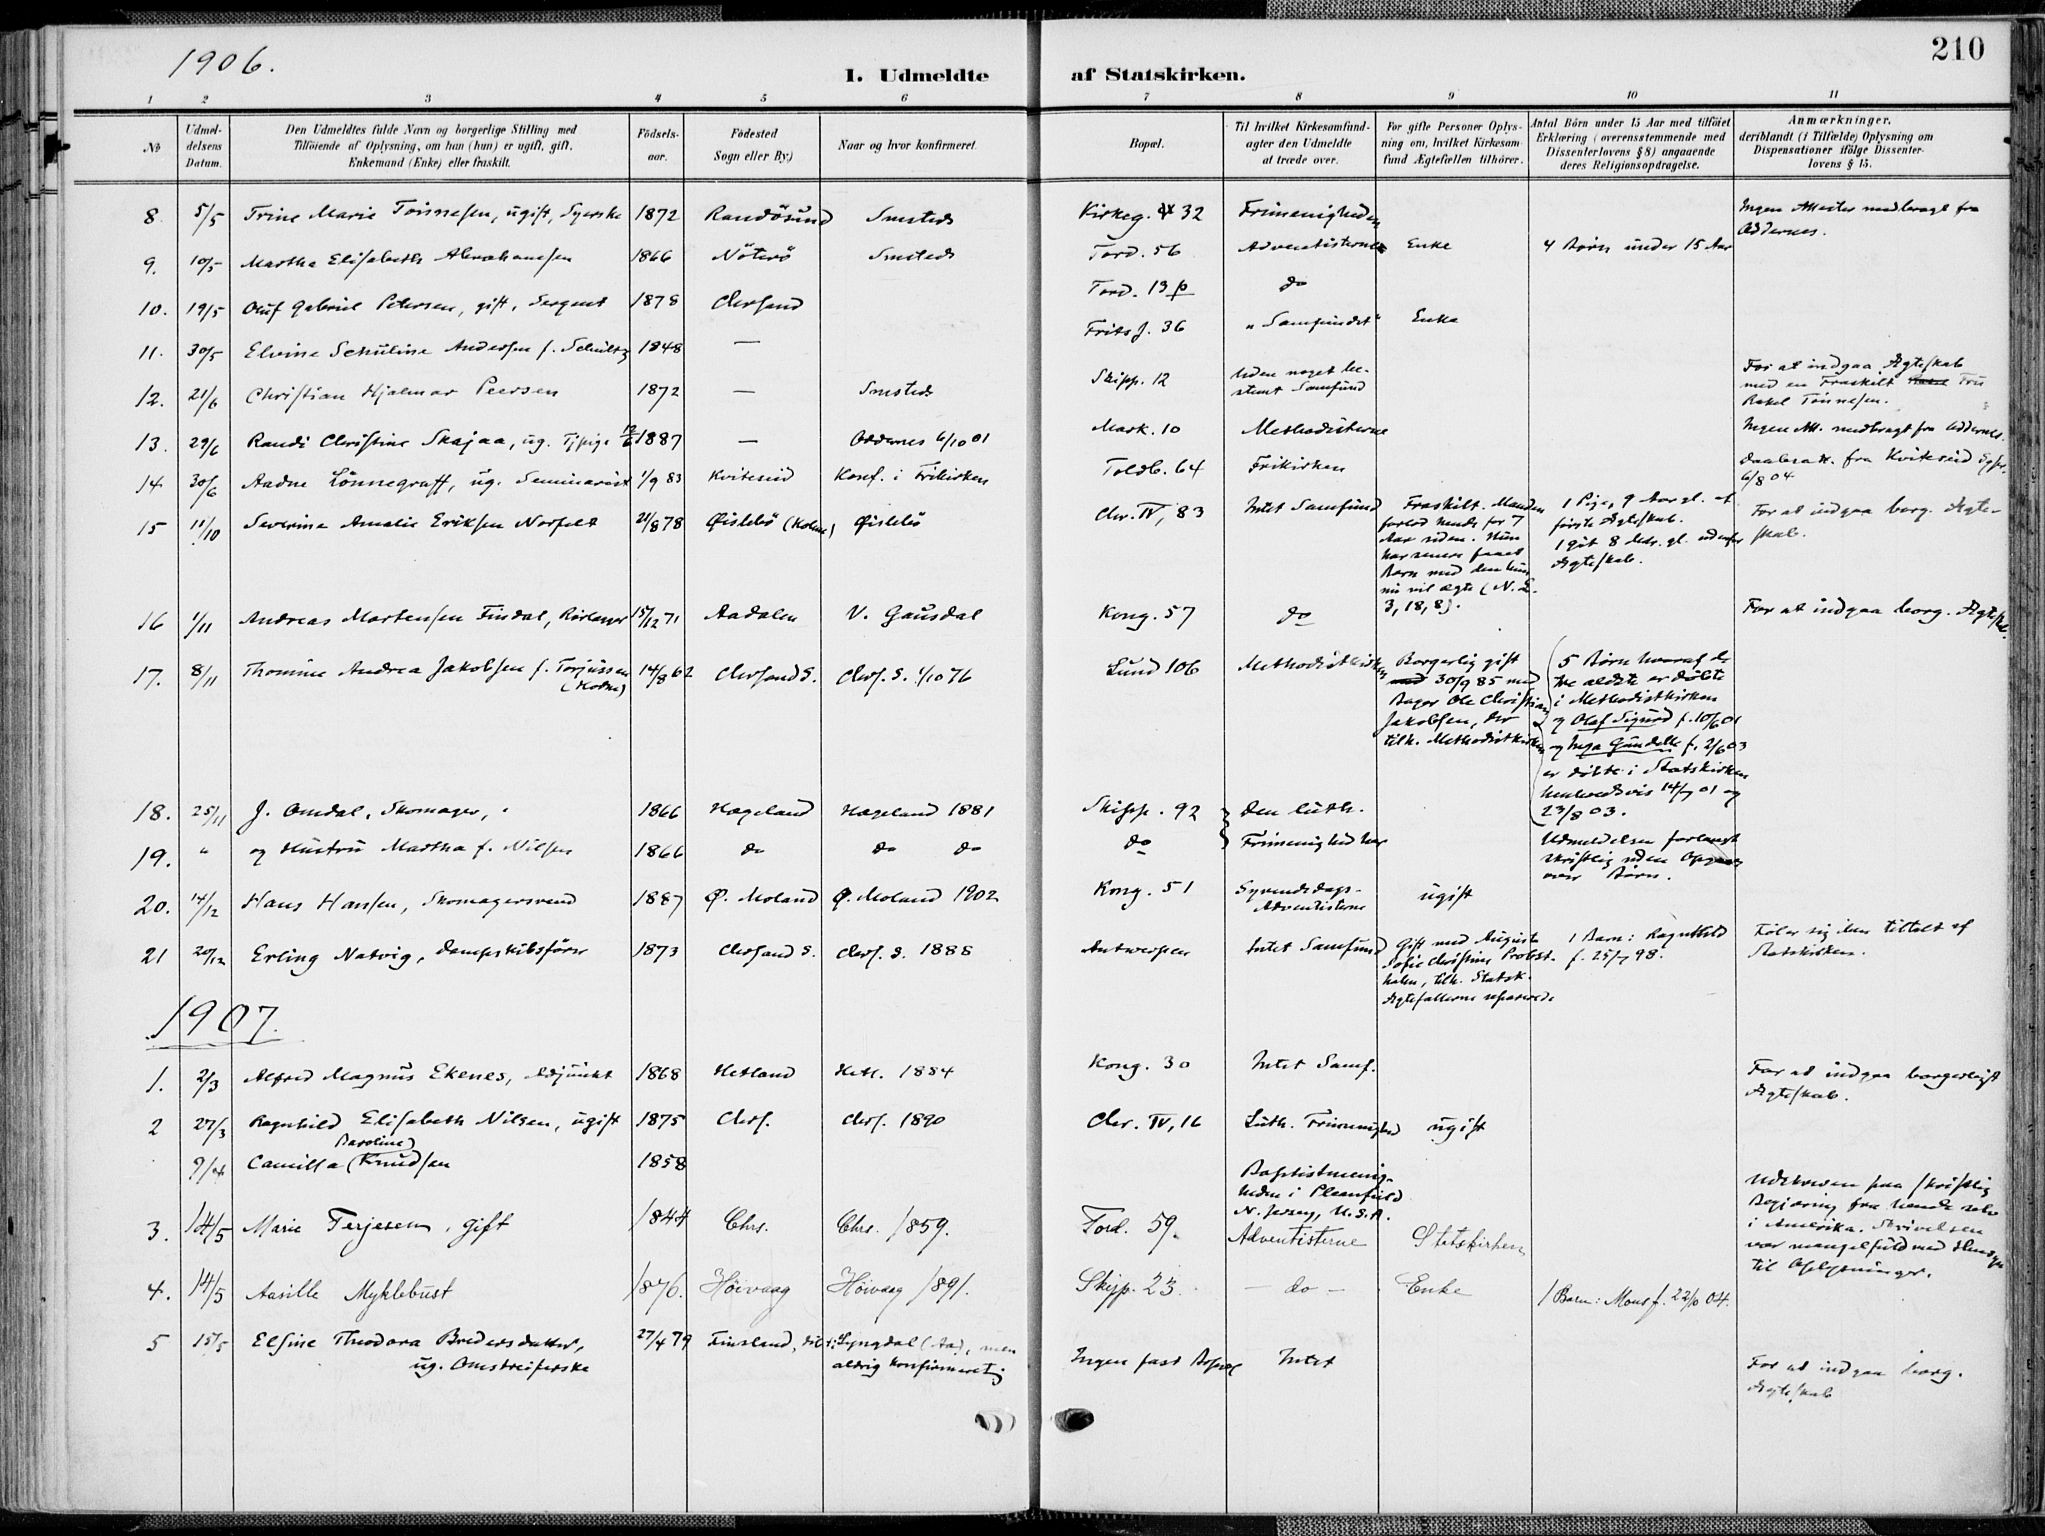 1906.
210
I. Udmeldte af Statskirken.
1 2 3 4 5 6 7 8 9 10 11
No
Udmel-
delsens
Datum.
Den Udmeldtes fulde Navn og borgerlige Stilling med
Tilføiende af Oplysning, om han (hun) er ugift, gift,
Enkemand (Enke) eller fraskilt.
Fødsels-
aar.
Fødested
Sogn eller By.)
Naar og hvor konfirmeret.
Bopæl.
Til hvilket Kirkesamfund
agter den Udmeldte
at træde over.
For gifte Personer Oplys-
ning om, hvilket Kirkesam-
fund Ægtefællen tilhører.
Antal Børn under 15 Aar med tilføiet
Erklæring (overensstemmende med
Dissenterlovens § 8) angaaende
deres Religionsopdragelse.
Anmærkninger,
deriblandt (i Tilfælde) Oplysning om
Dispensationer ifølge Dissenter-
lovens § 15.
8 5/5 Trine Marie Tønnesen, ugift, Syerske 1872 Randøsund Smsteds Kirkeg. 32 Frimenigheden
Ingen Attester medbragt fra
Oddernes.
9. 10/5 Martha Elisabeth Abrahamsen 1866 Nøterø Smsteds Tord. 56 Adventisterne Enke 4 Børn under 15 Aar
10. 19/5 Oluf Gabriel Petersen, gift, Sergent 1878 Chrsand Tord. 13 do
11. 30/5 Elvine Schuline Andersen f. Schultz 1848 — Frits J. 36 "Samfundet" Enke
12. 21/6 Christian Hjalmar Peersen 1872 — Smsteds Skipp. 12
Uden noget be-
stemt Samfund
For at indgaa Ægteskab
med en Fraskilt Fru
Rakel Tønnesen.
13. 29/6 Randi Christine Skajaa, ug. Tjpige 12/6 1887 — Oddernes 6/10 01 Mark. 10 Methodisterne Ingen Att. medbragt fra Oddernes.
14 30/6 Aadne Lønnegraff, ug. Seminarist 1/9 83 Kviteseid Konf. i Frikirken Toldb. 64 Frikirken
Daabsatt. fra Kviteseid
6/8 04
15 11/10 Severine Amalie Eriksen Norfelt 21/8 78 Øislebø (Holme) Øislebø Chr. IV, 83 Intet Samfund
Fraskilt. Manden
forlod hende for 7
Aar siden. Hun
har senere faaet
Barn med den hun
nu vil ægte (N. L.
3, 18, 8).
1 Pige, 9 Aar gl. af
første Ægteskab.
1 gut 8 Mdr. gl. udenfor
Ægteskab.
For at indgaa borg. Ægte-
skab.
16 1/11 Andreas Martensen Findal, Rørlægger 15/12 71 Aadalen V. Gausdal Kong. 57 do For at indgaa borg. Ægtesk.
17. 8/11 Thomine Andrea Jakobsen f. Torjussen 14/8 62 Chrsand S. Chrs. S. 1/10 76 Lund 106 Methodistkirken
Borgerlig gift
30/9 85 med
Bager Ole Christian
Jakobsen, der
tilh. Methodistkirken
5 Børn hvoraf de
tre ældste er døbte
i Methodistkirken
og Olaf Sigurd f. 10/6 01
og Inga Gundelle f. 2/6 03
er døbte i Statskirken
henholdsvis 14/7 01 og
23/8 03.
18. 25/11 J. Omdal, Skomager, 1866 Hægeland Hægeland 1881 Skipp. 92 Den luth.
19. " og Hustru Martha f. Nilsen 1866 do do do do Frimenighed her
Udmeldelsen forlangt
skriftlig uden Opgave
over Børn.
20. 14/12 Hans Hansen, Skomagersvend 1887 Ø. Moland Ø. Moland 1902 Kong. 51
Syvendedags-
Adventisterne
ugift
21 20/12 Erling Natvig, Dampskibsfører 1873 Chrsand S. Chrs. S. 1888 Antwerpen Intet Samfund
Gift med Augusta
Sofie Christine Probst-
, tilh. Statsk.
Ægtefællerne separerede
1 Barn: Ragnhild
f. 25/7 98.
Føler sig ikke tiltalt af
Statskirken.
1907.
1. 2/3 Alfred Magnus Ekenes, Adjunkt 1868 Hetland Hetl. 1884 Kong. 30 Intet Samf.
For at indgaa borgerligt
Ægteskab.
2 27/3 Ragnhild Elisabeth Nilsen, ugift 1875 Chrs. Chrs. 1890 Chr. IV, 16 Luth. Frimenighed ugift
9/4 Camilla (Baroline) Knudsen 1858
Baptistmenig-
heden i Plainfield
N. Jersey, U.S.A.
Udtraadt paa skriftlig
Begjæring fra hende selv
i Amerika. Skrivelsen
var mangelfuld med Hensyn
til Oplysninger.
3. 14/5 Marie Terjesen, gift 1844 Chrs. Chrs. 1859. Tord. 59. Adventisterne Statskirken
4. 14/5 Aasille Myklebust 1876. Høivaag Høivaag 1891. Skipp. 23. — do — Enke 1 Barn: Mons f. 22/10 04.
5 15/5 Elsine Theodora Bredersdatter,
ug. Omstreiferske
27/4 79 Finsland, Lyngdal (Aa), men
aldrig konfirmeret
Ingen fast Bopæl Intet
For at indgaa borg.
Ægteskab